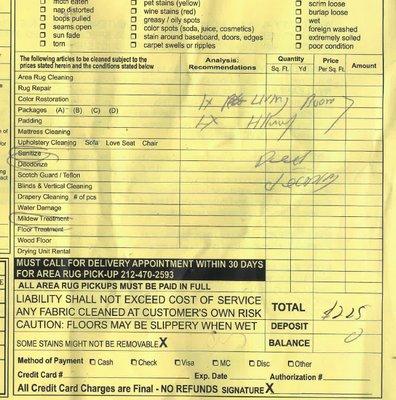 moth eaten
pet stains (yellow)
scrim loose
nap distorted
wine stains (red)
burlap loose
loops pulled
greasy / oily spots
wet
seams open
color spots (soda, juice, cosmetics)
foreign washed
sun fade
stain around baseboard, doors, edges
extremely soiled
torn
carpet swells or ripples
poor condition
The following articles to be cleaned subject to the
prices stated herein and the conditions stated below
Analysis:
Recommendations
Quantity
Sq. Ft. Yd
Price
Per Sq. Ft.
Amount
Area Rug Cleaning
Rug Repair
Color Restoration
1x Living Room
Packages (A) (B) (C) (D)
Padding
1x Hallway
Mattress Cleaning
Upholstery Cleaning Sofa Love Seat Chair
Sanitize
Deodorize
Deep
Scotch Guard / Teflon
Blinds & Vertical Cleaning
Drapery Cleaning # of pcs
Water Damage
Mildew Treatment
Floor Treatment
Wood Floor
Drying Unit Rental
MUST CALL FOR DELIVERY APPOINTMENT WITHIN 30 DAYS
FOR AREA RUG PICK-UP 212-470-2593
ALL AREA RUG PICKUPS MUST BE PAID IN FULL
LIABILITY SHALL NOT EXCEED COST OF SERVICE
ANY FABRIC CLEANED AT CUSTOMER'S OWN RISK
CAUTION: FLOORS MAY BE SLIPPERY WHEN WET
SOME STAINS MIGHT NOT BE REMOVABLE X
TOTAL $225
DEPOSIT
BALANCE 0
Method of Payment Cash Check Visa MC Disc Other
Credit Card # Exp. Date Authorization #
All Credit Card Charges are Final - NO REFUNDS SIGNATURE X